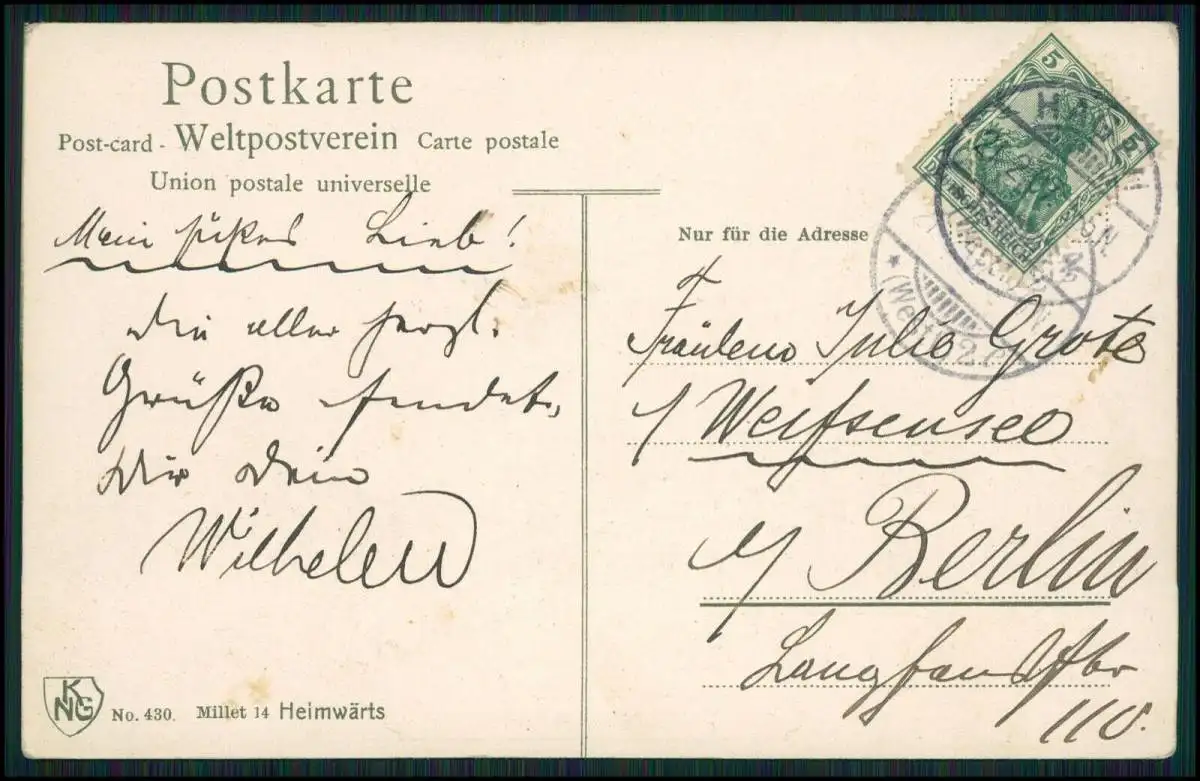 Postkarte
Post-card - Weltpostverein Carte postale
Union postale universelle
Mein süßes Lieb!
die aller herzl.
Grüße sendet
Dir Dein
Wilhelm
KNG
No. 430. Millet 14 Heimwärts
5 5
DEUTSCHES REICH
HAGEN
(Westf)
Nur für die Adresse
Fräulein Julie Grote
Weifsensee
Berlin
Langhansstr
110.